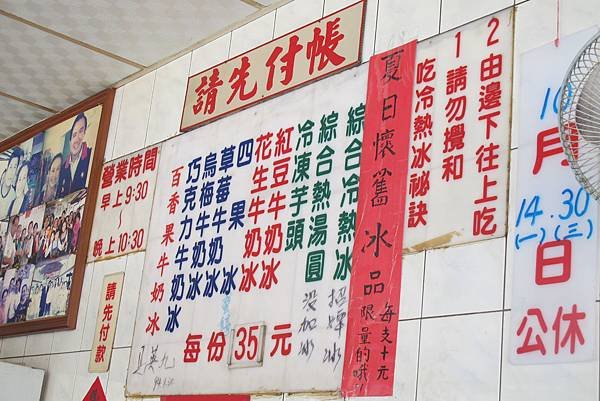 請先付帳
2由邊下往上吃
1請勿攪和
吃冷熱冰祕訣
夏日懷舊冰品
限量的哦
每支十元
綜合冷熱冰
招牌冰
綜合熱湯圓
沒加冰
冷凍芋頭
紅豆牛奶冰
花生牛奶冰
四果冰
草莓牛奶冰
烏梅牛奶冰
巧克力牛奶冰
百香果牛奶冰
每份35元
營業時間
早上9:30
~
晚上10:30
請先付款
10月
14.30
(一)(三)
日公休